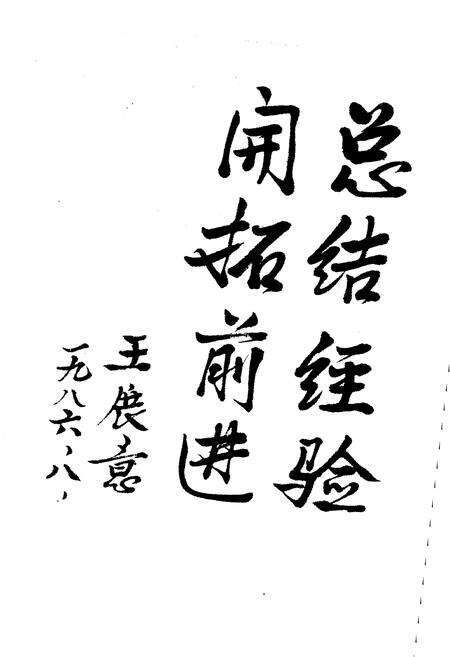 总结经验
開拓前进
王展意
一九八六、八、